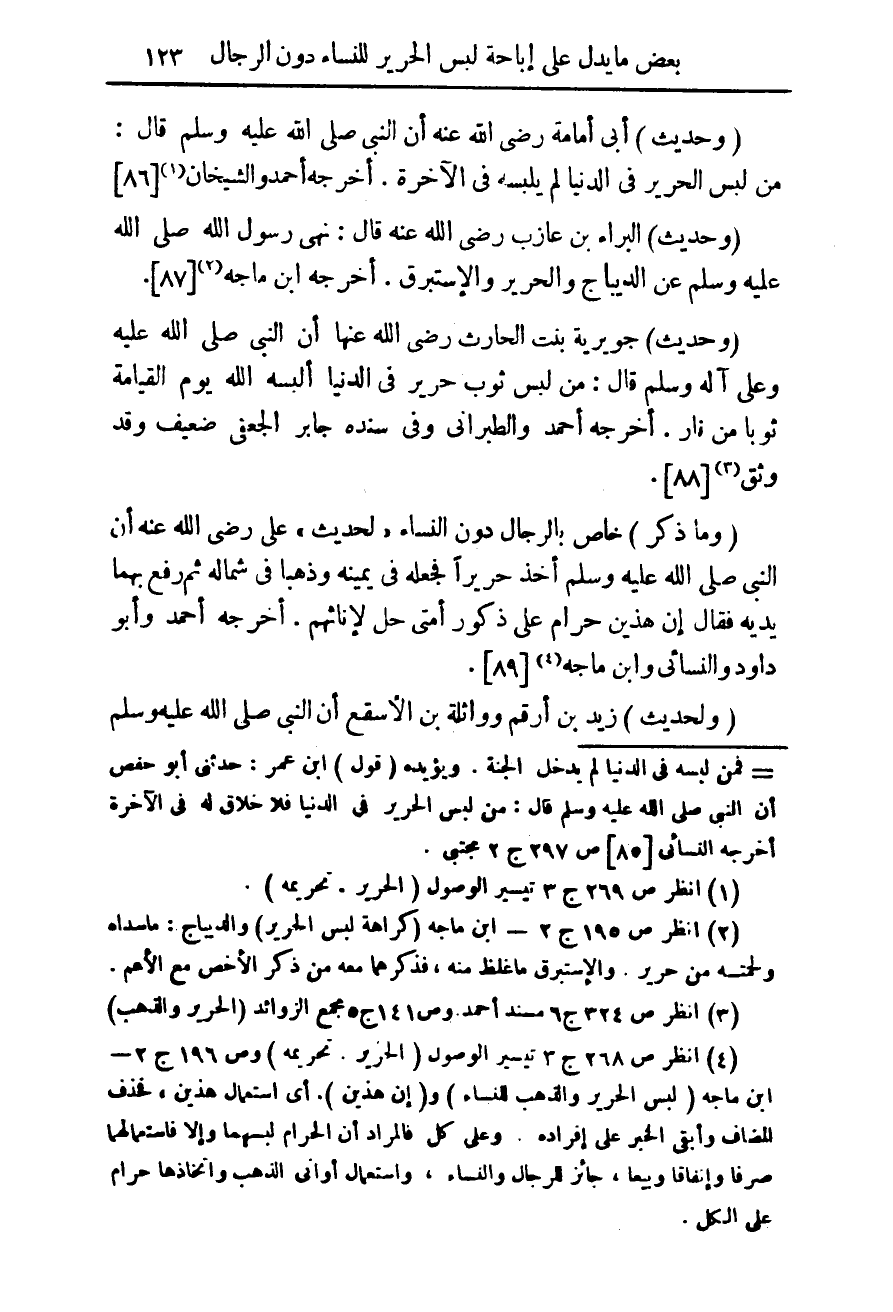 بعض مايدل على إباحة لبس الحرير للنساء دون الرجال ١٢٣
( وحديث ) أبى أمامة رضى الله عنه أن النبى صلى الله عليه وسلم قال :
من لبس الحرير فى الدنيا لم يلبسه فى الآخرة . أخرجه أحمدوالشيخان(١)[٨٦]
(وحديث) البراء بن عازب رضى الله عنه قال : نهى رسول الله صلى الله
عليه وسلم عن الديباج والحرير والإستبرق . أخرجه ابن ماجه(٢)[٨٧].
(وحديث) جويرية بنت الحارث رضى الله عنها أن النبى صلى الله عليه
وعلى آله وسلم قال : من لبس ثوب حرير فى الدنيا ألبسه الله يوم القيامة
ثوبا من نار . أخرجه أحمد والطبرانى وفى سنده جابر الجعفى ضعيف وقد
وثق(٣)[٨٨] .
( وما ذكر ) خاص بالرجال دون النساء « لحديث » على رضى الله عنه أن
النبى صلى الله عليه وسلم أخذ حريراً فجعله فى يمينه وذهبا فى شماله ثم رفع بهما
يديه فقال إن هذين حرام على ذكور أمتى حل لإناثهم . أخرجه أحمد وأبو
داود والنسائى وابن ماجه(٤) [٨٩] .
( ولحديث ) زيد بن أرقم وواثلة بن الأسقع أن النبى صلى الله عليه وسلم
= فمن لبسه فى الدنيا لم يدخل الجنة . ويؤيده ( قول ) ابن عمر : حدثنى أبو حفص
أن النبى صلى الله عليه وسلم قال : من لبس الحرير فى الدنيا فلا خلاق له فى الآخرة
أخرجه النسائى [٨٥] ص ٢٩٧ ج ٢ مجتبى .
(١) انظر ص ٢٦٩ ج ٣ تيسير الوصول ( الحرير . تحريمه ) .
(٢) انظر ص ١٩٥ ج ٢ – ابن ماجه (كراهة لبس الحرير) والديباج : ماسداه
ولحمته من حرير . والإستبرق ماغلظ منه ، فذكرهما معه من ذكر الأخص مع الأعم .
(٣) انظر ص ٣٢٤ ج٦ مسند أحمد.وص١٤١ج٥مجمع الزوائد (الحرير والذهب)
(٤) انظر ص ٢٦٨ ج ٣ تيسير الوصول ( الحرير . تحريمه ) وص ١٩٦ ج ٢ –
ابن ماجه ( لبس الحرير والذهب للنساء ) و( إن هذين ). أى استعمال هذين ، فحذف
المضاف وأبقى الخبر على إفراده . وعلى كل فالمراد أن الحرام لبسهما وإلا فاستعمالهما
صرفا وإنفاقا وبيعا ، جائز للرجال والنساء ، واستعمال أوانى الذهب واتخاذها حرام
على الكل .